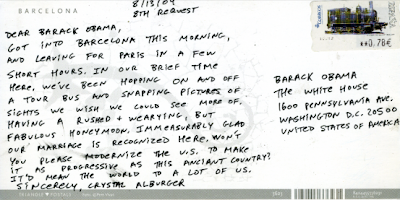 BARCELONA
8/13/09
8TH REQUEST
DEAR BARACK OBAMA,
GOT INTO BARCELONA THIS MORNING,
AND LEAVING FOR PARIS IN A FEW
SHORT HOURS. IN OUR BRIEF TIME
HERE, WE'VE BEEN HOPPING ON AND OFF
A TOUR BUS AND SNAPPING PICTURES OF
SIGHTS WE WISH WE COULD SEE MORE OF.
HAVING A RUSHED + WEARYING, BUT
FABULOUS HONEYMOON. IMMEASURABLY GLAD
OUR MARRIAGE IS RECOGNIZED HERE. WON'T
YOU PLEASE MODERNIZE THE U.S. TO MAKE
IT AS PROGRESSIVE AS THIS ANCIENT COUNTRY?
IT'D MEAN THE WORLD TO A LOT OF US.
SINCERELY, CRYSTAL ALBURGER
**0,78€
BARACK OBAMA
THE WHITE HOUSE
1600 PENNSYLVANIA AVE.
WASHINGTON D.C. 20500
UNITED STATES OF AMERICA